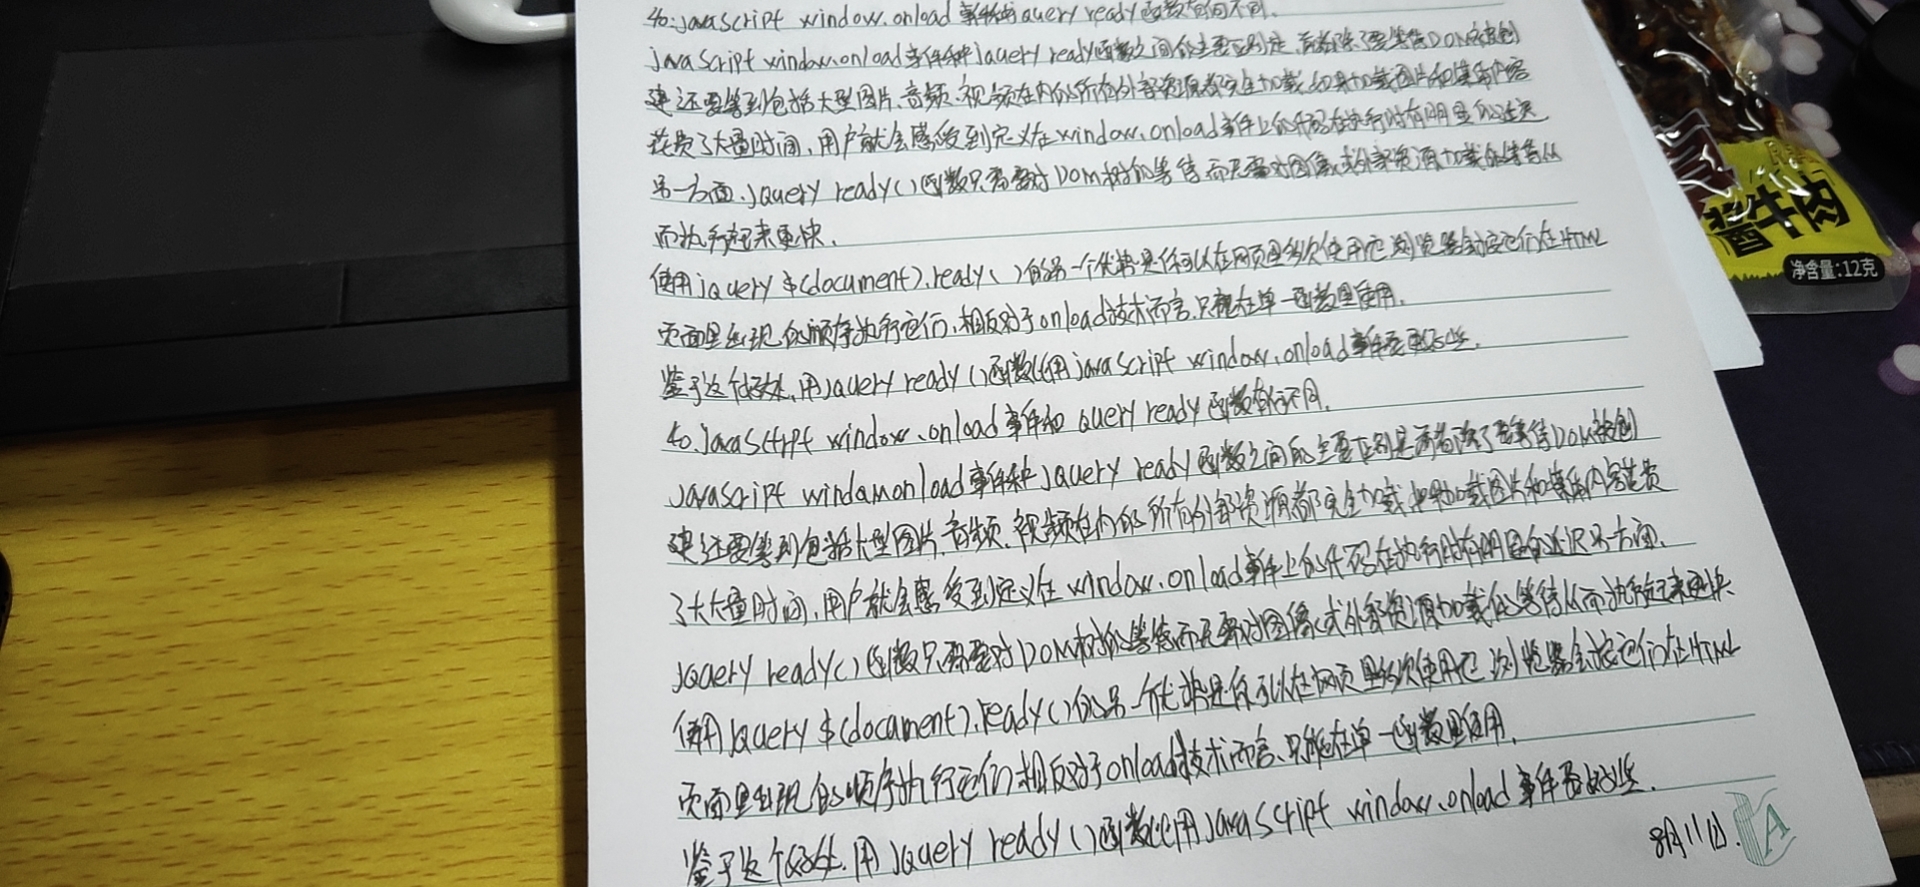 40.JavaScript window.onload事件和query ready函数有何不同.
JavaScript window.onload事件和Jquery ready函数之间的主要区别是,前者除了要等待DOM被创
建还要等到包括大型图片、音频、视频在内的所有外部资源都完全加载,如果加载图片和媒体内容
花费了大量时间,用户就会感受到定义在window.onload事件上的代码在执行时有明显的延迟
另一方面.Jquery ready()函数只需要对DOM树的等待而无需对图像或外部资源加载的等待从
而执行起来更快.
使用jquery $(document).ready()的另一个优势是你可以在网页里多次使用它 浏览器会按它们在HTML
页面里出现的顺序执行它们,相反对于onload技术而言.只能在单一函数里使用.
鉴于这个好处,用Jquery ready()函数比用javaScript window.onload事件要更好些.
40.JavaScript window.onload事件和query ready函数有何不同.
JavaScript window.onload事件和Jquery ready函数之间的主要区别是前者除了要等待DOM被创
建还要等到包括大型图片.音频.视频在内的所有外部资源都完全加载 如果加载图片和媒体内容花费
了大大量时间,用户就会感受到定义在window.onload事件上的代码在执行时有明显的延迟另一方面、
Jquery ready()函数只需要对DOM树的等待而无需对图像或外部资源加载的等待从而执行起来更快
使用Jquery $(document).ready()的另一个优势是你可以在网页里多次使用它 浏览器会按它们在HTML
页面里出现的顺序执行它们相反对于onload技术而言、只能在单一函数里使用.
鉴于这个好处.用Jquery ready()函数比用JavaScript window.onload事件要好些.
8月11日.
A
酱牛肉
净含量:12克